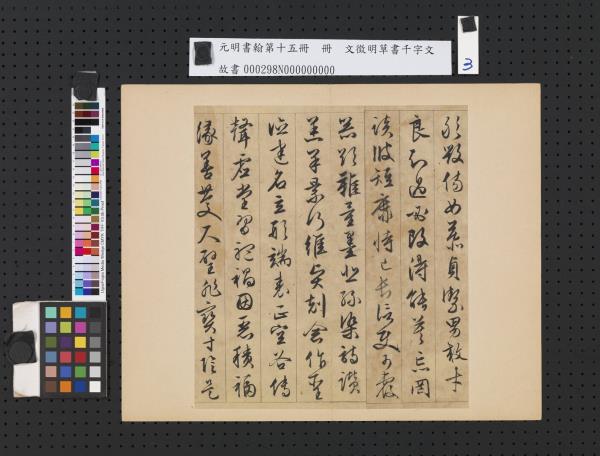 元明書翰第十五冊 冊 文徵明草書千字文
故書000298N000000000
3
敢毀傷女慕貞潔男效才
良知過必改得能莫忘罔
談彼短靡恃己長信使可覆
器欲難量墨悲絲染詩讚
羔羊景行維賢剋念作聖
德建名立形端表正空谷傳
聲虛堂習聽禍因惡積福
緣善慶尺璧非寶寸陰是